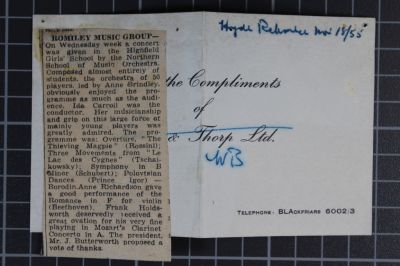 Hyde Reporter Nov 18/55
ROMILEY MUSIC GROUP—
On Wednesday week a concert
was given in the Highfield
Girls' School by the Northern
School of Music Orchestra.
Composed almost entirely of
students, the orchestra of 50
players, led by Anne Brindley,
obviously enjoyed the pro-
gramme as much as the audi-
ence. Ida Carroll was the
conductor. Her musicianship
and grip on this large force of
mainly young players was
greatly admired. The pro-
gramme was: Overture, "The
Thieving Magpie" (Rossini);
Three Movements from "Le
Lac des Cygnes" (Tschai-
kowsky); Symphony in B
Minor (Schubert); Polovtsian
Dances (Prince Igor) —
Borodin. Anne Richardson gave
a good performance of the
Romance in F for violin
(Beethoven). Frank Holds-
worth deservedly received a
great ovation for his very fine
playing in Mozart's Clarinet
Concerto in A. The president,
Mr. J. Butterworth proposed a
vote of thanks.
the Compliments
of
& Thorp Ltd.
WB
TELEPHONE: BLACKFRIARS 6002/3